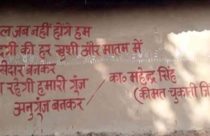 ल जब नहीं होंगे हम
की हर खुशी और मातम में
दार बनकर
रहेगी हमारी गूँज
अनुगूँज बनकर
का० महेन्द्र सिंह
(कीमत चुकाती